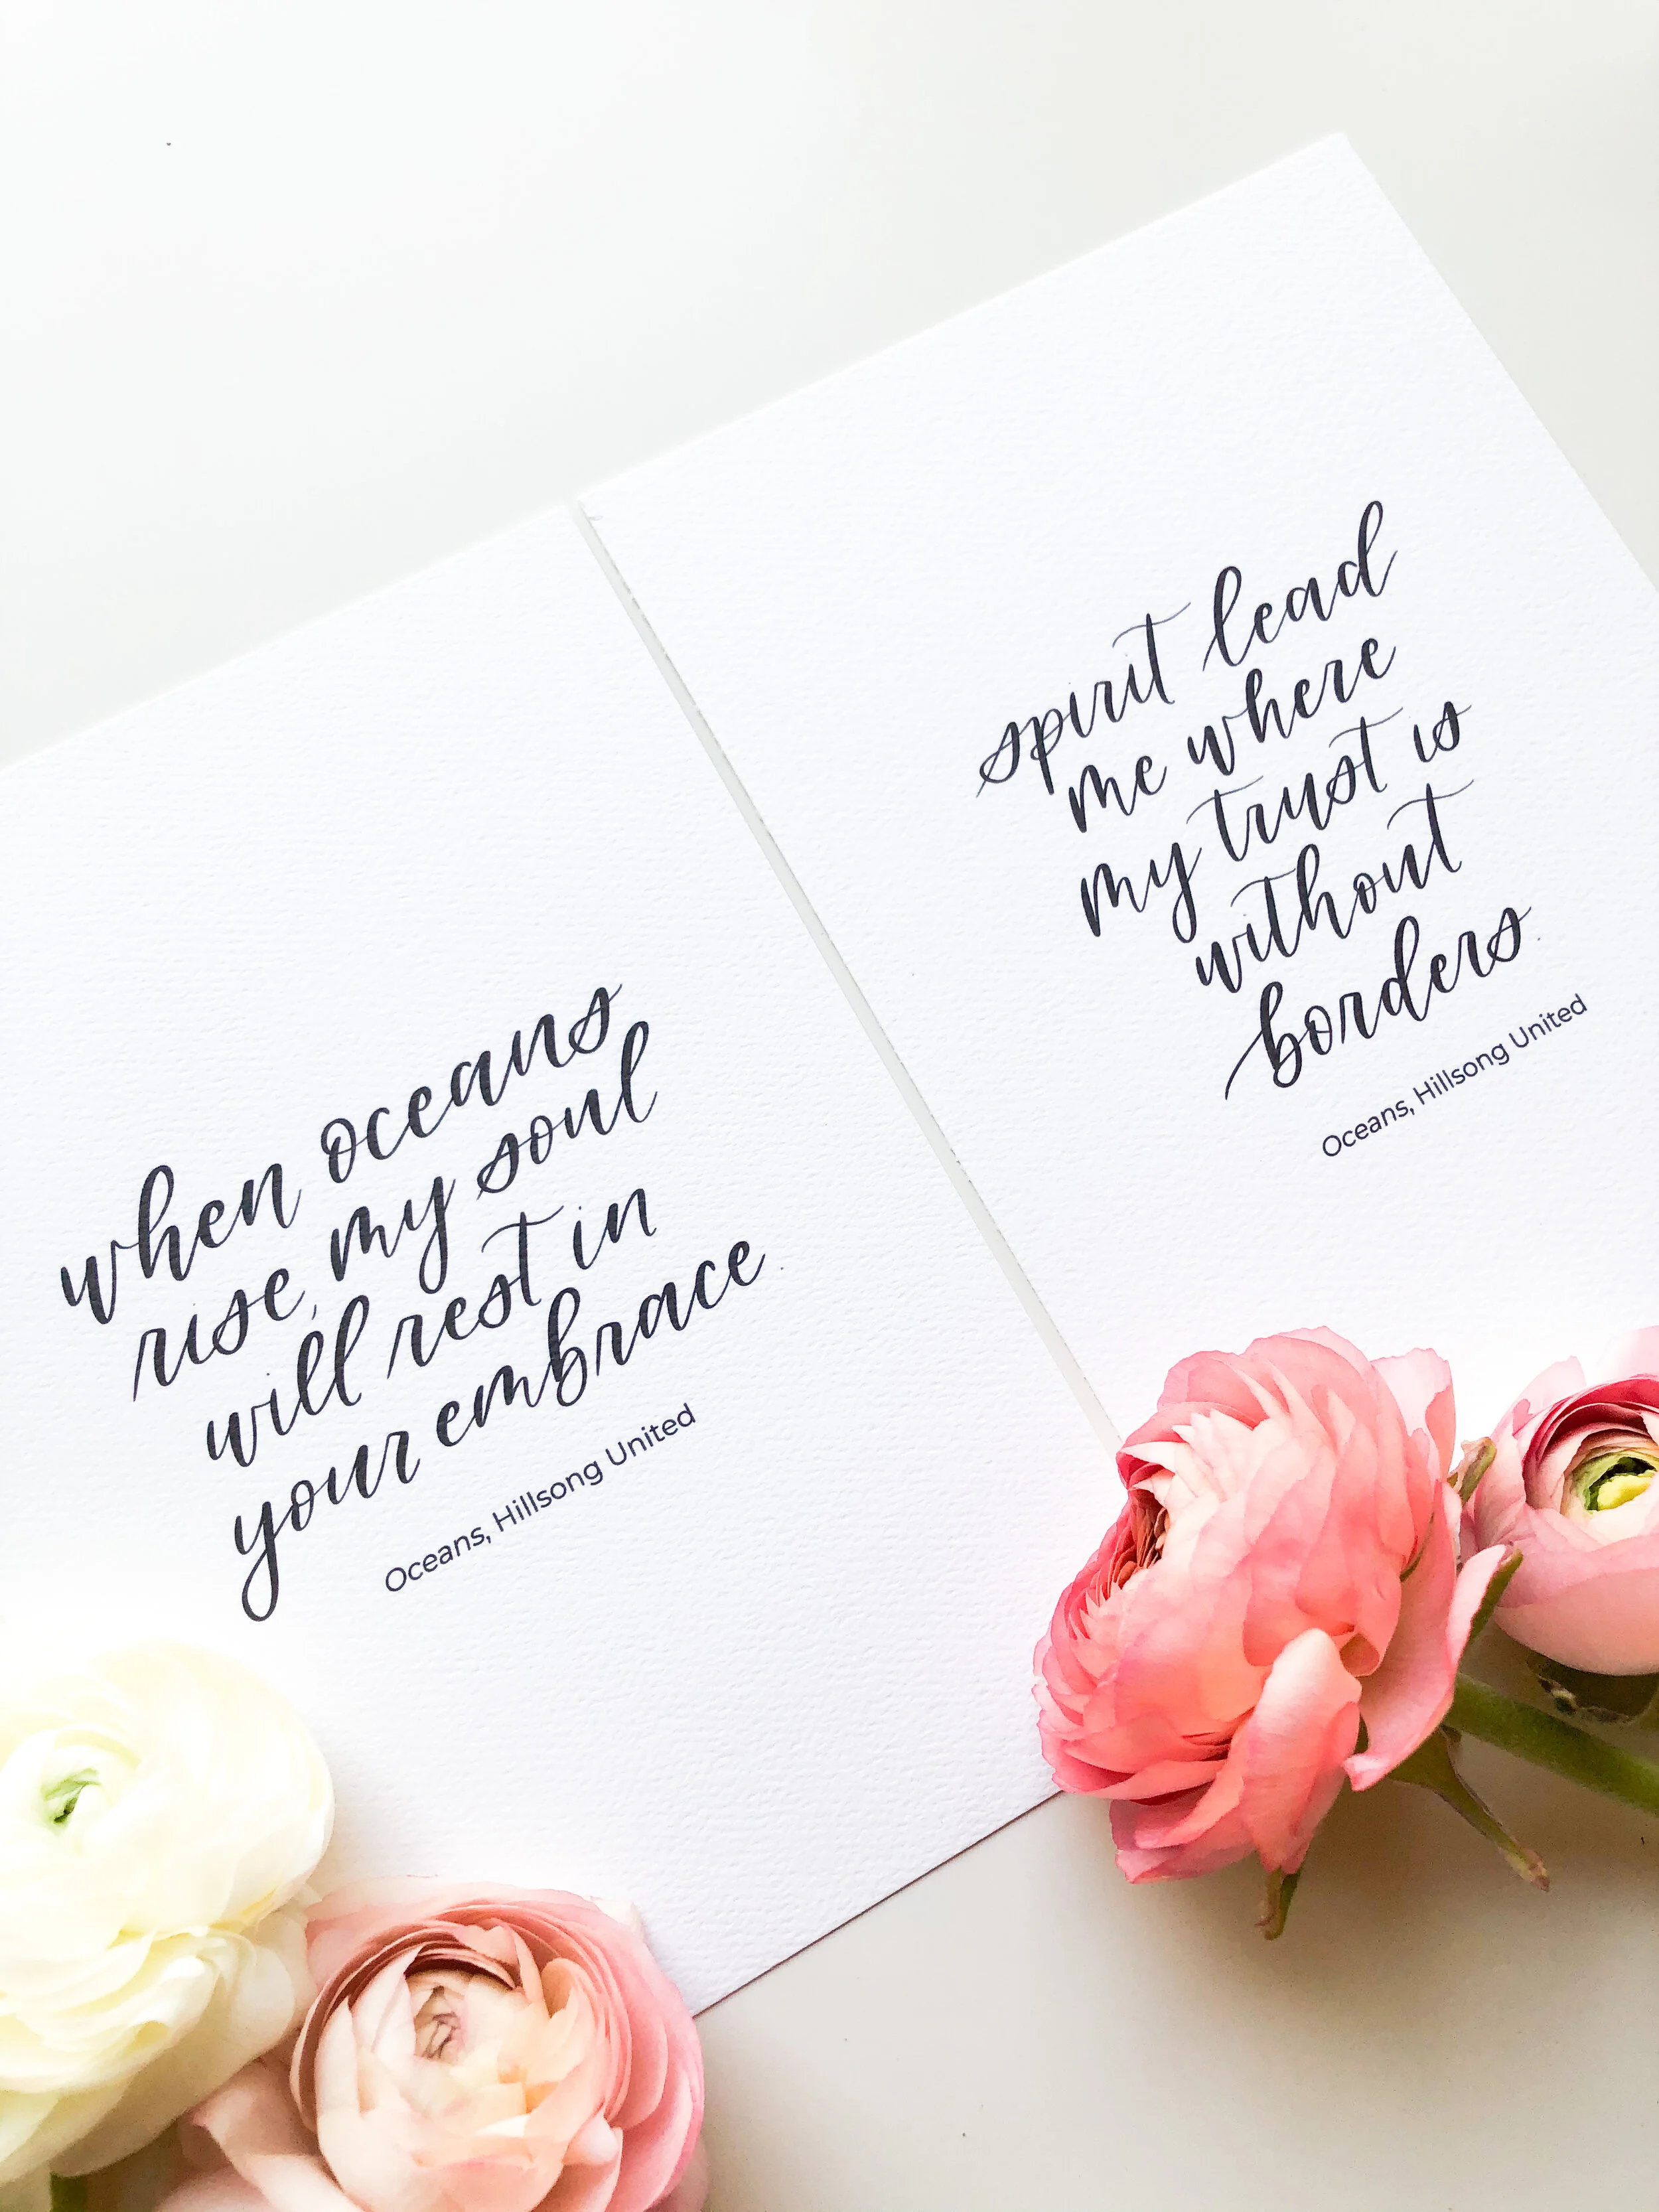 when oceans
rise, my soul
will rest in
your embrace
Oceans, Hillsong United
spirit lead
me where
my trust is
without
borders
Oceans, Hillsong United